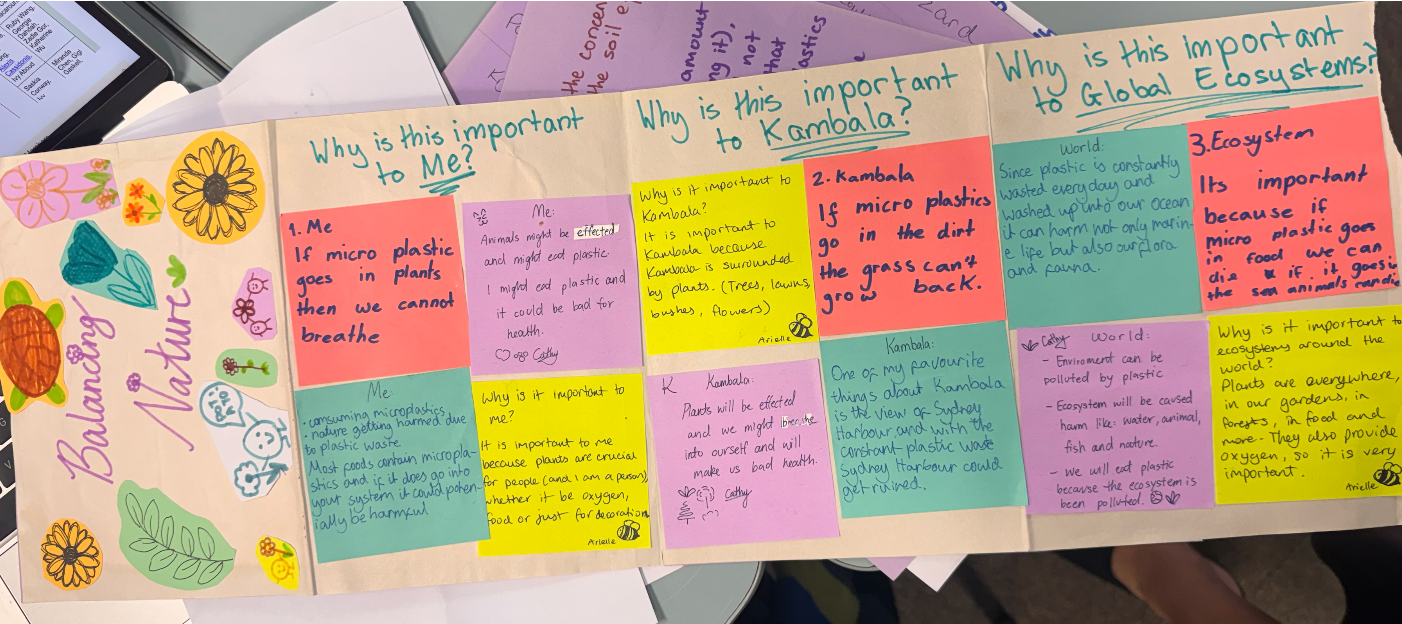 Ruby Wang,
George
Dahdah,
Zadie Gor,
Katherine
Wu
Ivy About
Miranda
Chen, Gigi
Gaskell,
Saskia
Conway,
the concen
the soil e
amount
ng it),
not
that
astics
zard
Balancing
Nature
Why is this important
to Me?
1. Me
If micro plastic
goes in plants
then we cannot
breathe
Me:
Animals might be effected
and might eat plastic.
I might eat plastic and
it could be bad for
health.
Cathy
Me:
· comsuming microplastics
· nature getting harmed due
to plastic waste
Most foods contain micropla-
stics and if it does go into
your system it could poten-
ially be harmful
Why is it important to
me?
It is important to me
because plants are crucial
for people (and I am a person),
whether it be oxygen,
food or just for decoration
Arielle
Why is this important
to Kambala?
Why is it important to
Kambala?
It is important to
Kambala because
Kambala is surrounded
by plants. (Trees, lawns,
bushes, flowers)
Arielle
2. Kambala
If micro plastics
go in the dirt
the grass can't
grow back.
K Kambala:
Plants will be effected
and we might
into ourself and will
make us bad health.
Cathy
Kambala:
One of my favourite
things about Kambala
is the view of Sydney
Harbour and with the
constant plastic waste
Sydney Harbour could
get ruined.
Why is this important
to Global Ecosystems?
World:
Since plastic is constantly
wasted everyday and
washed up into our ocean
it can harm not only marin-
e life but also our flora
and fauna.
3. Ecosystem
Its important
because if
micro plastic goes
in food we can
die & if it goes in
the sea animals can die
Cathy World:
- Enviroment can be
polluted by plastic
- Ecosystem will be caused
harm like: water, animal,
fish and nature.
- we will eat plastic
because the ecosystem is
been polluted.
Why is it important to
ecosystems around the
world?
Plants are everywhere,
in our gardens, in
forests, in food and
more. They also provide
oxygen, so it is very
important.
Arielle